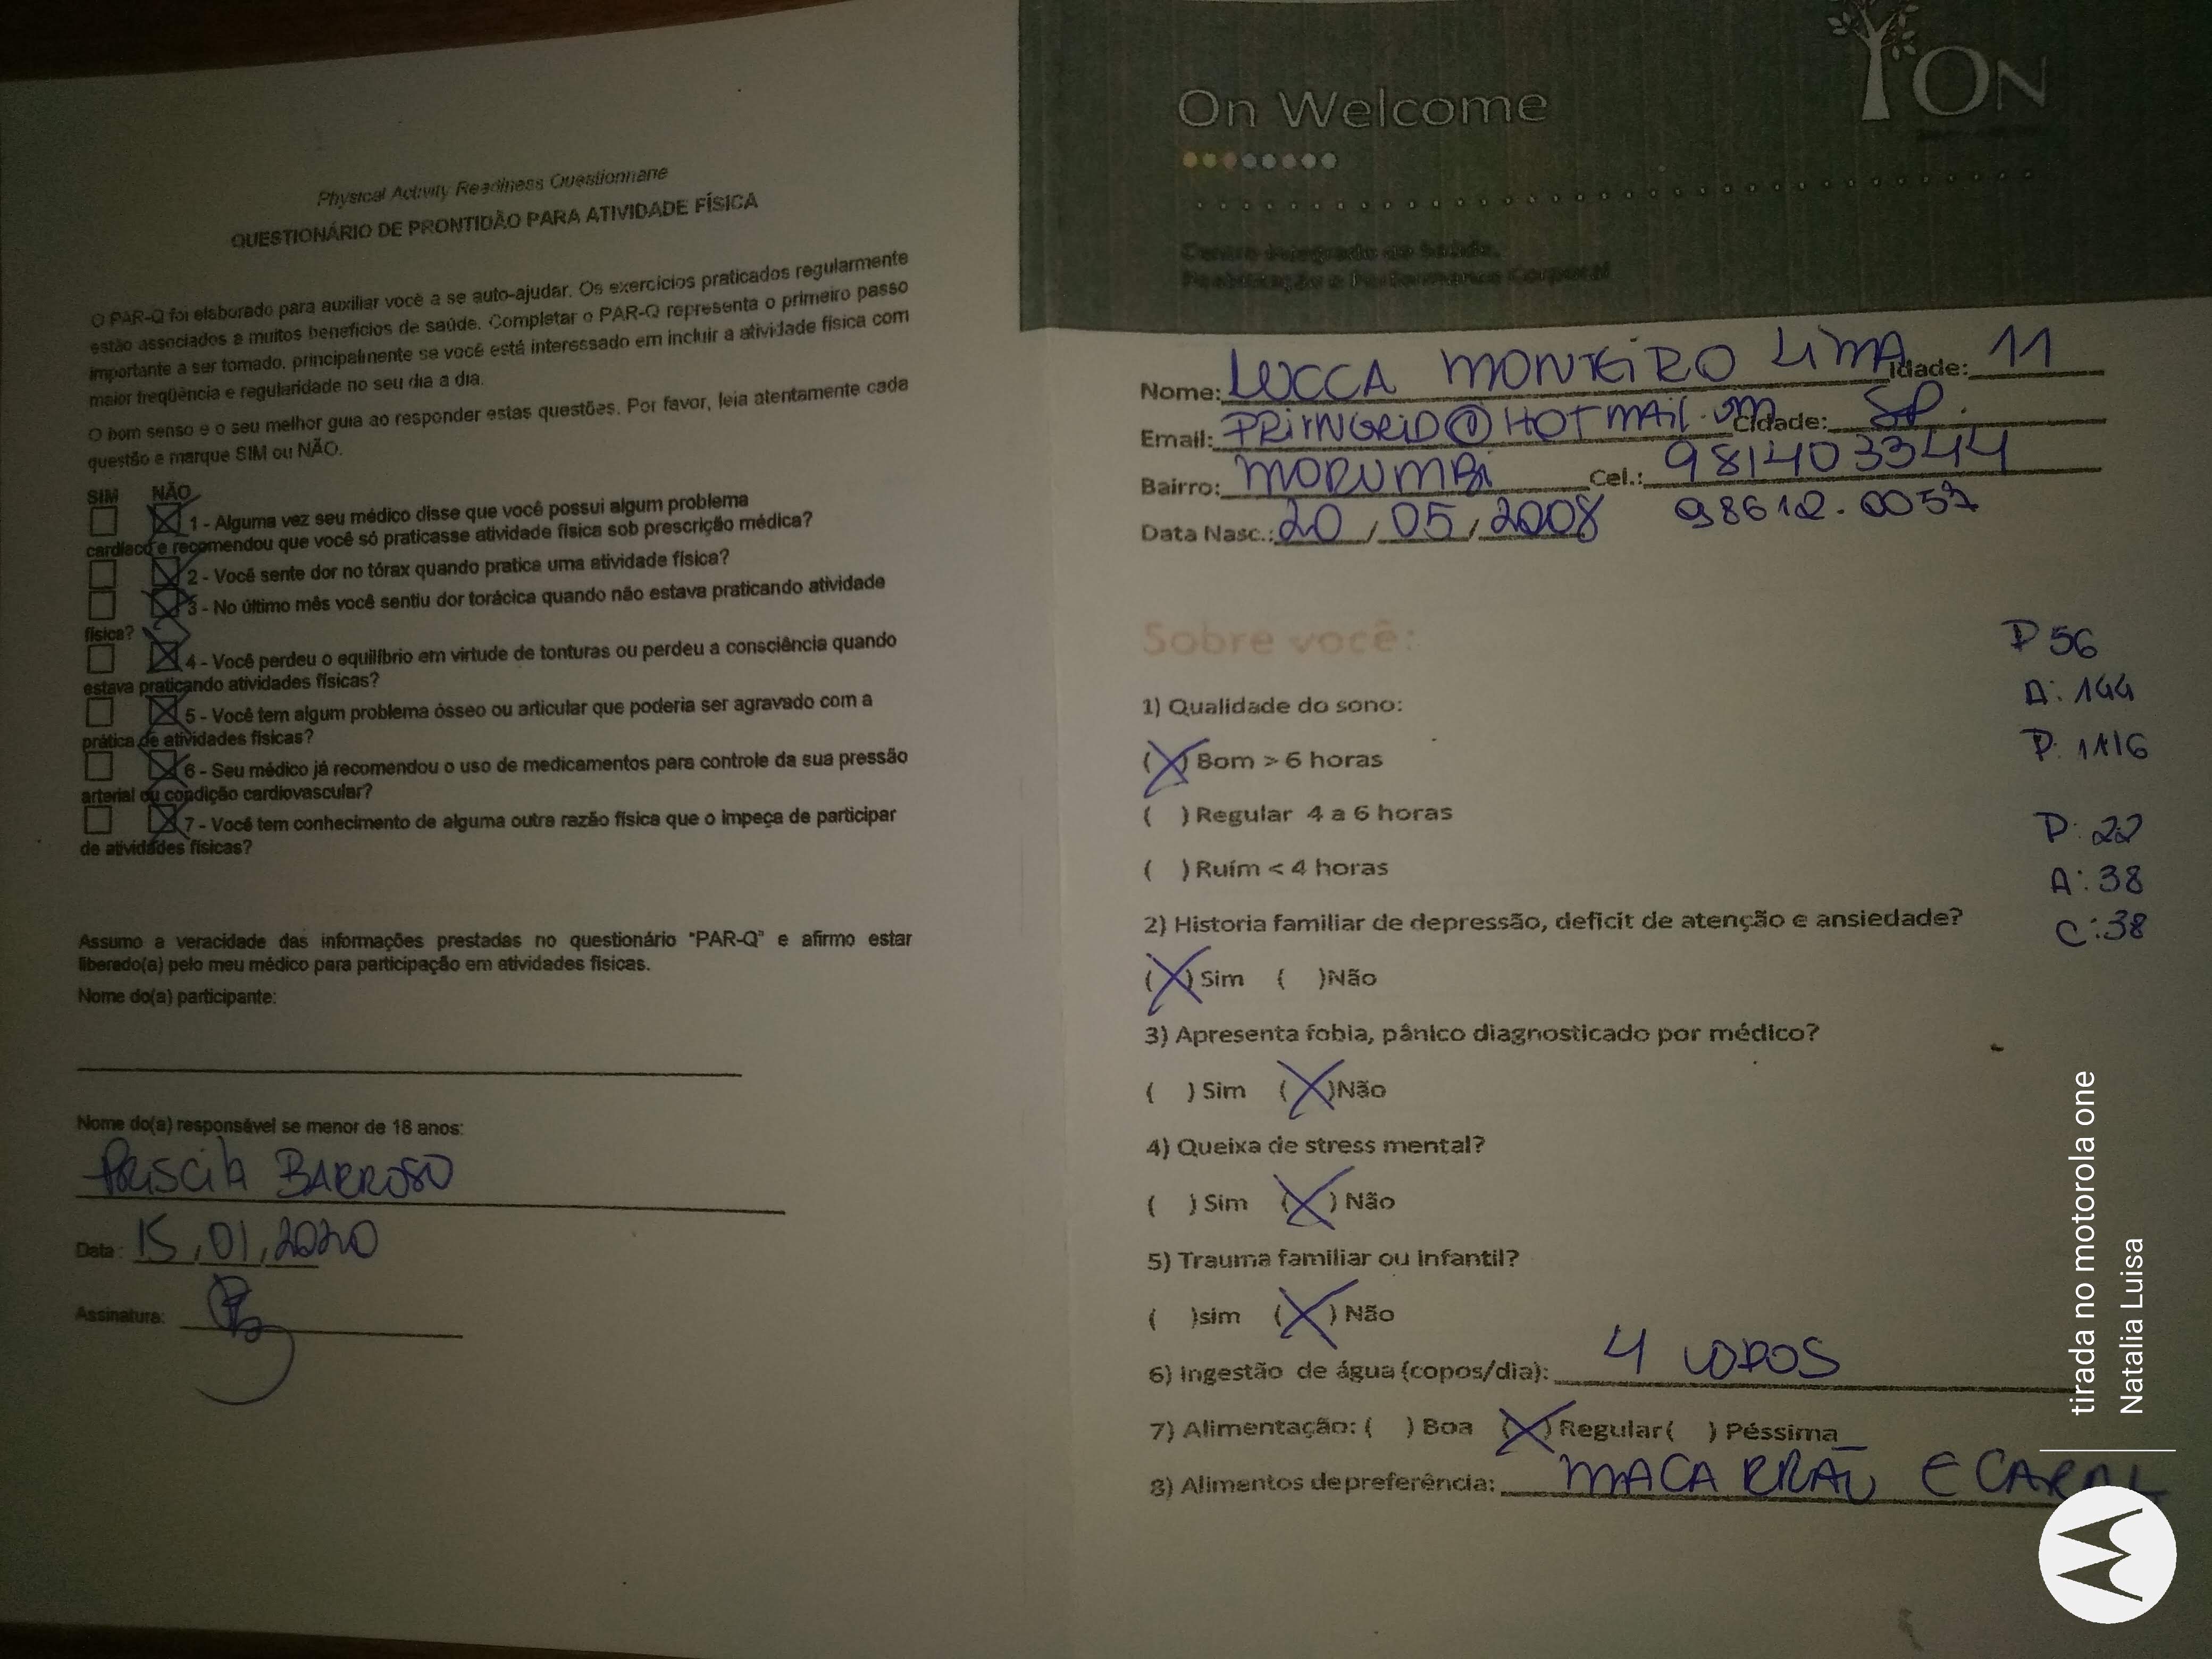 Physical Activity Readiness Questionnaire
QUESTIONÁRIO DE PRONTIDÃO PARA ATIVIDADE FÍSICA
O PAR-Q foi elaborado para auxiliar você a se auto-ajudar. Os exercícios praticados regularmente
estão associados a muitos benefícios de saúde. Completar o PAR-Q representa o primeiro passo
importante a ser tomado, principalmente se você está interessado em incluir a atividade física com
maior freqüência e regularidade no seu dia a dia.
O bom senso e o seu melhor guia ao responder estas questões. Por favor, leia atentamente cada
questão e marque SIM ou NÃO.
SIM NÃO
1 - Alguma vez seu médico disse que você possui algum problema
cardíaco e recomendou que você só praticasse atividade física sob prescrição médica?
2 - Você sente dor no tórax quando pratica uma atividade física?
3 - No último mês você sentiu dor torácica quando não estava praticando atividade
física?
4 - Você perdeu o equilíbrio em virtude de tonturas ou perdeu a consciência quando
estava praticando atividades físicas?
5 - Você tem algum problema ósseo ou articular que poderia ser agravado com a
prática de atividades físicas?
6 - Seu médico já recomendou o uso de medicamentos para controle da sua pressão
arterial ou condição cardiovascular?
7 - Você tem conhecimento de alguma outra razão física que o impeça de participar
de atividades físicas?
Assumo a veracidade das informações prestadas no questionário "PAR-Q" e afirmo estar
liberado(a) pelo meu médico para participação em atividades físicas.
Nome do(a) participante:
Nome do(a) responsável se menor de 18 anos:
Priscila BARROSO
Data: 15, 01, 2020
Assinatura:
On Welcome
ON
Nome: LUCCA MONTEIRO LIMA Idade: 11
Email: PRINGRID@HOTMAIL.COM Cidade: SP
Bairro: MORUMBI Cel.: 981403344
Data Nasc.: 20/05/2008 98612-0057
Sobre você:
P56
1) Qualidade do sono:
A: 144
(X) Bom > 6 horas
P: 11/6
( ) Regular 4 a 6 horas
P: 22
( ) Ruím < 4 horas
A: 38
2) Historia familiar de depressão, deficit de atenção e ansiedade?
C: 38
(X) Sim ( )Não
3) Apresenta fobia, pânico diagnosticado por médico?
( ) Sim (X)Não
4) Queixa de stress mental?
( ) Sim (X) Não
5) Trauma familiar ou infantil?
( )sim (X) Não
6) Ingestão de água (copos/dia): 4 COPOS
7) Alimentação: ( ) Boa (X) Regular( ) Péssima
8) Alimentos de preferência: MACARRÃO, E CARNE
tirada no motorola one
Natalia Luisa